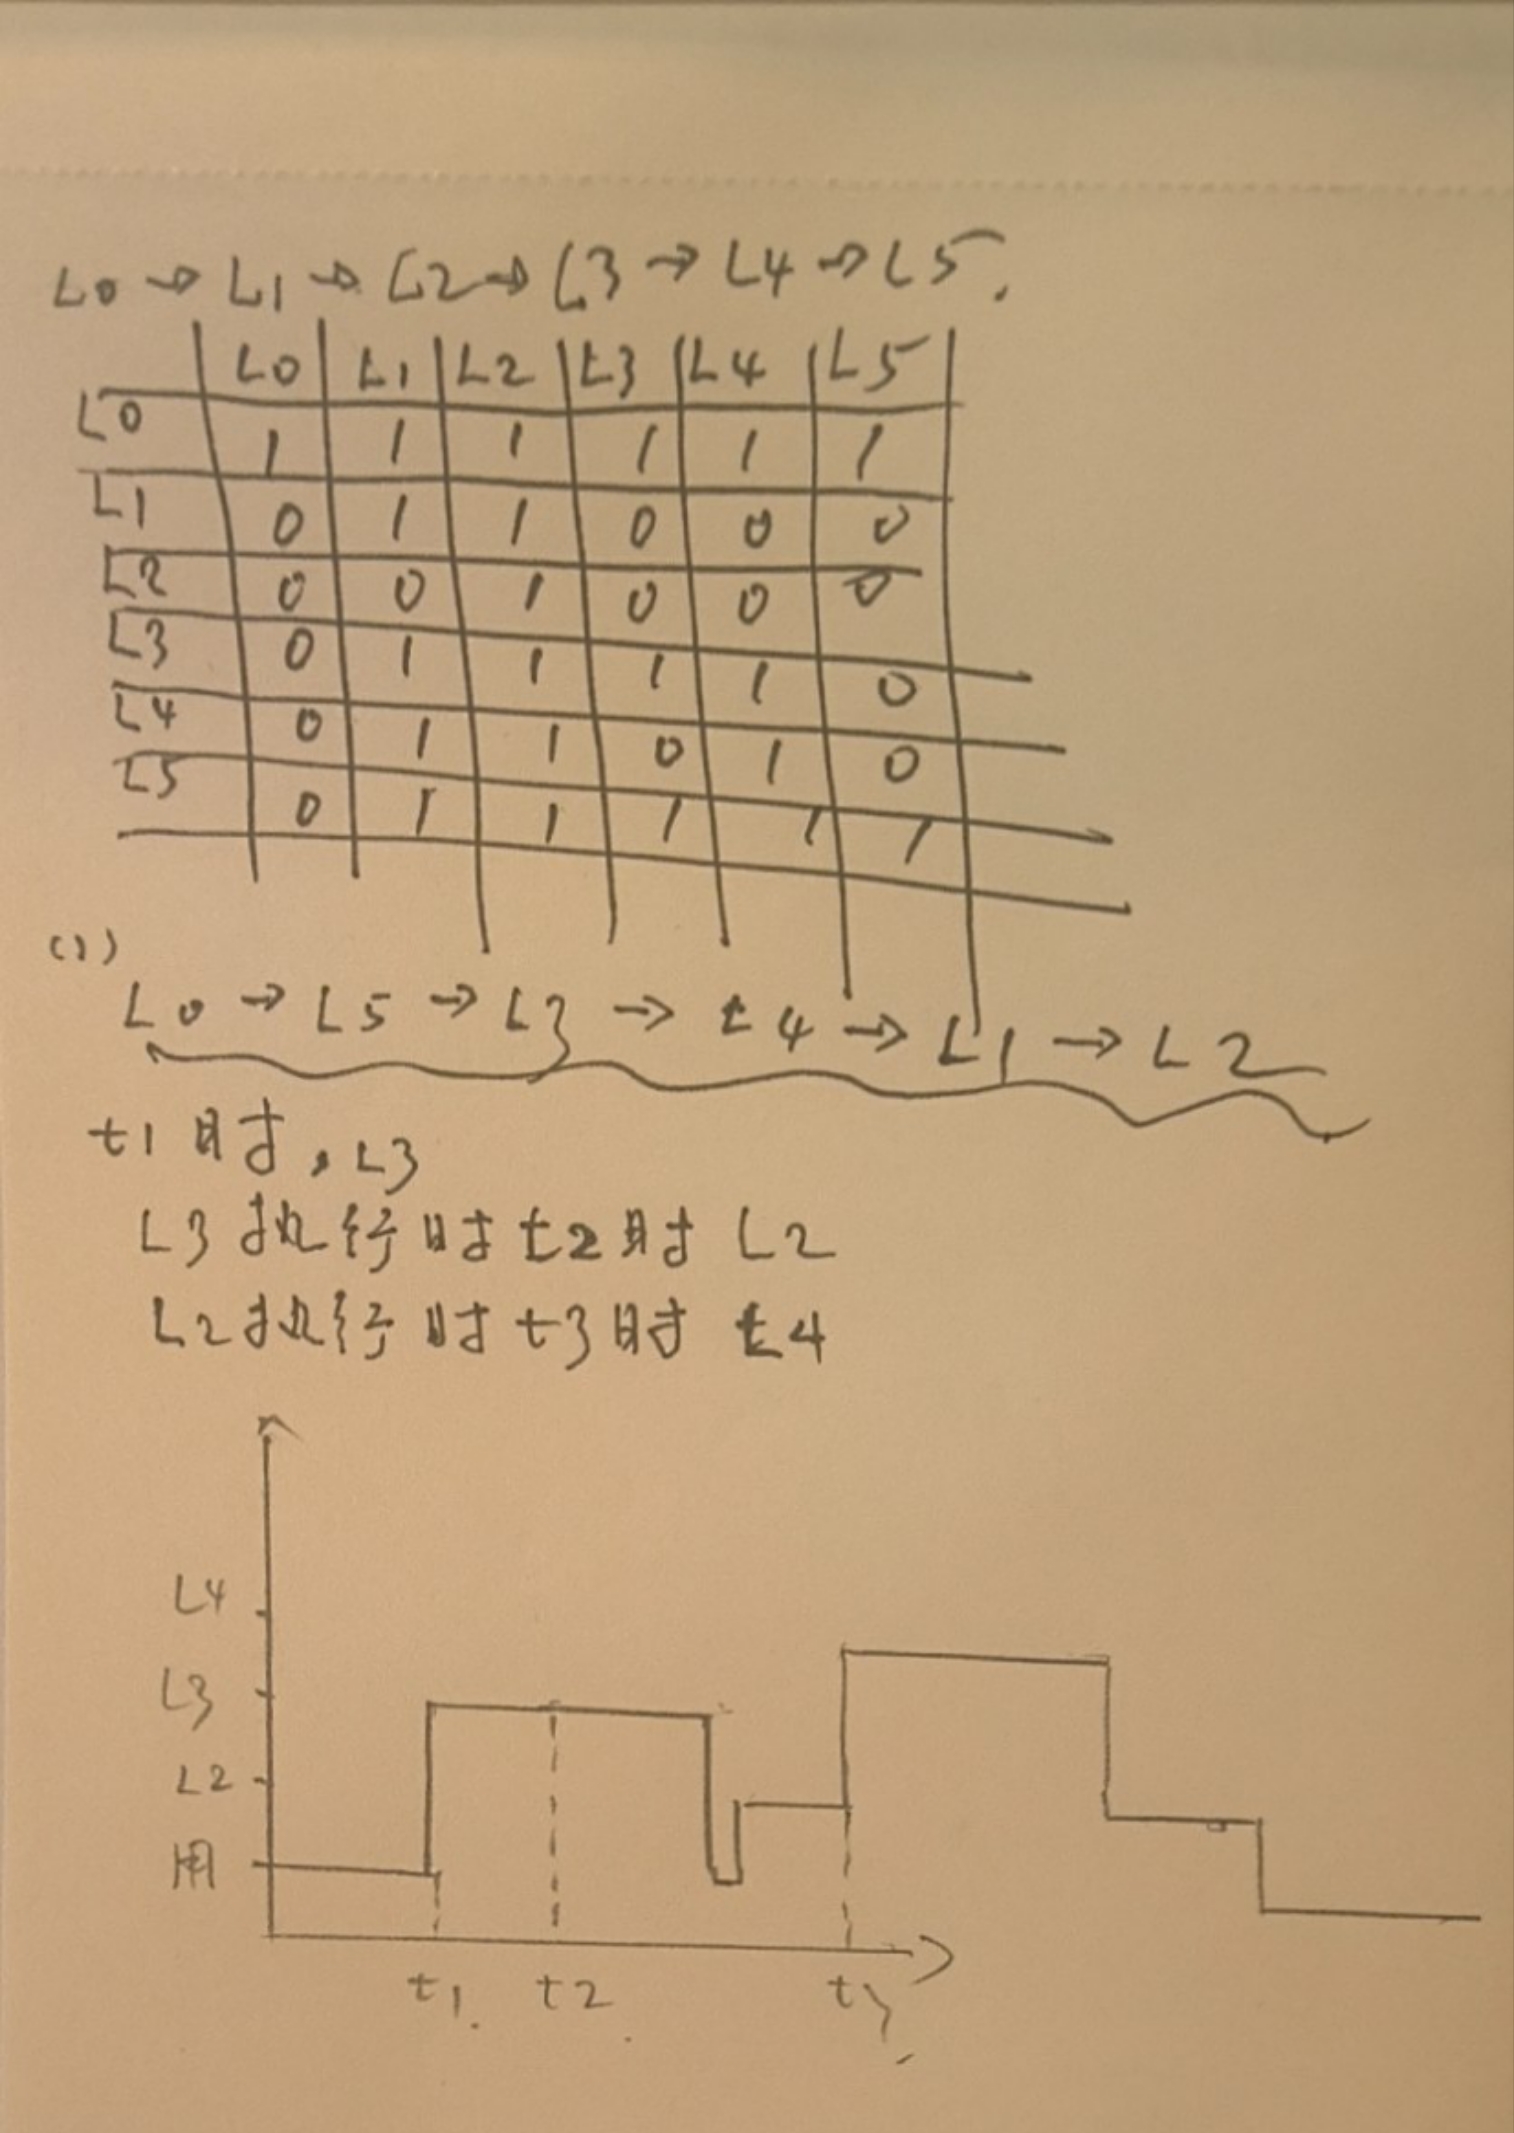 L0 → L1 → L2 → L3 → L4 → L5.
L0 L1 L2 L3 L4 L5
L0 1 1 1 1 1 1
L1 0 1 1 0 0 0
L2 0 0 1 0 0 0
L3 0 1 1 1 1 0
L4 0 1 1 0 1 0
L5 0 1 1 1 1 1
(1)
L0 → L5 → L3 → L4 → L1 → L2
t1时, L3
L3执行时t2时 L2
L2执行时t3时 L4
L4
L3
L2
用
t1. t2. t3.